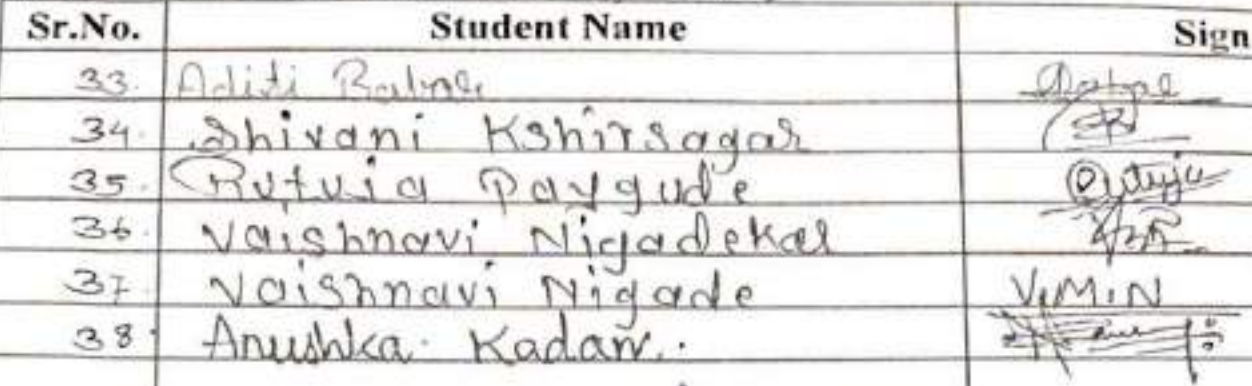 Sr.No. Student Name Sign
33. Aditi
34. Shivani Kshirsagar
35. Rutuja Paygude Rutuja
36. Vaishnavi Nigadekar
37 Vaishnavi Nigade V.M.N
38. Anushka. Kadam.